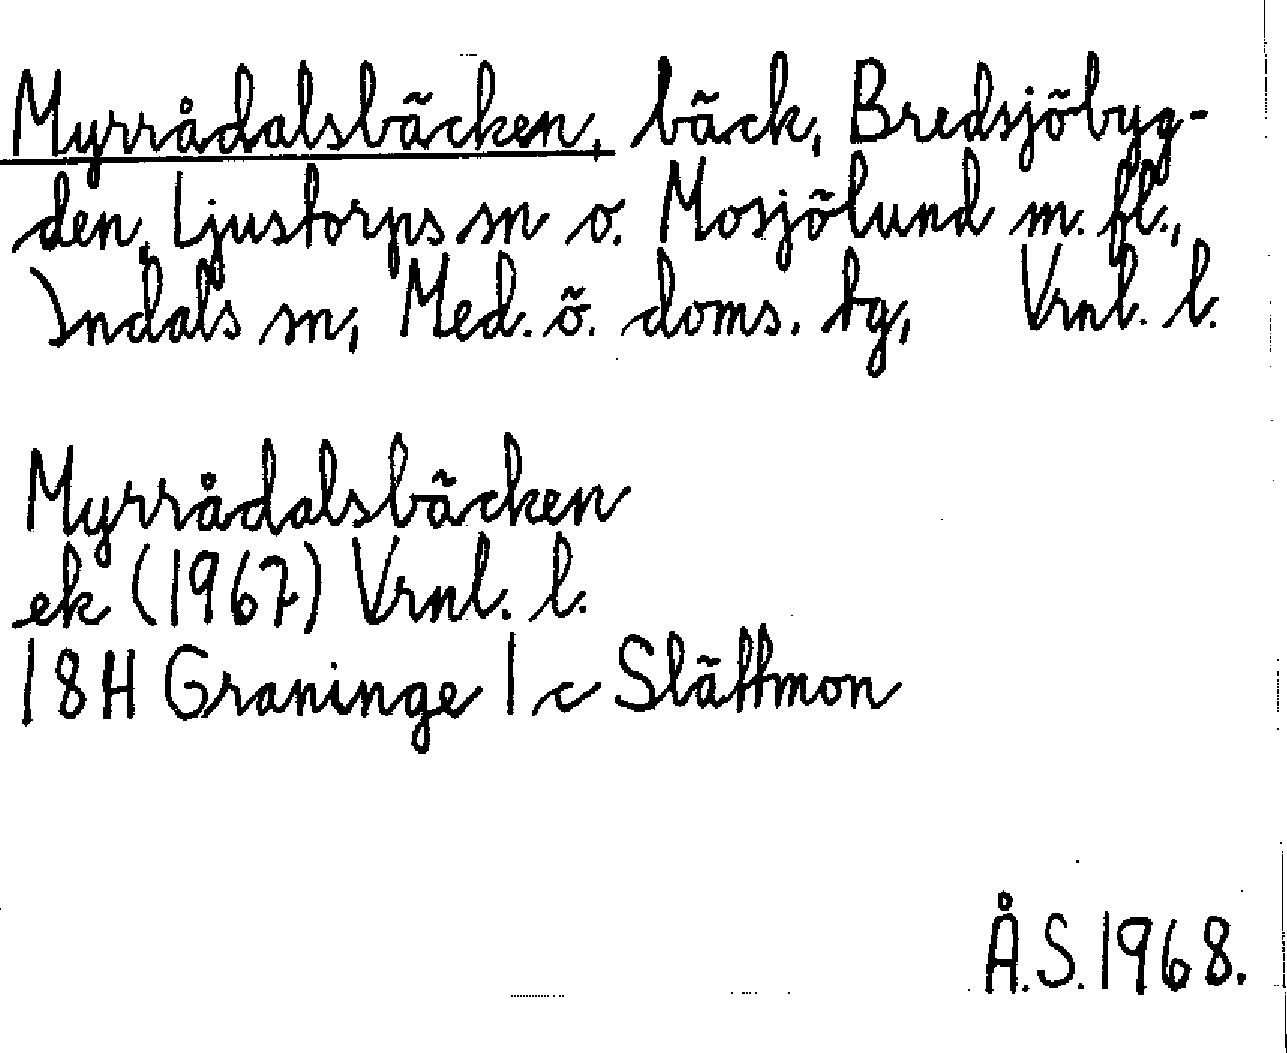 Myrrådalsbäcken, bäck, Bredsjöbyg-
den, Ljustorps sn o. Mosjölund m. fl.,
Indals sn, Med. ö. doms. tg, Vrnl. l.
Myrrådalsbäcken
ek (1967) Vrnl. l.
18H Graninge 1 c Slättmon
Å.S. 1968.